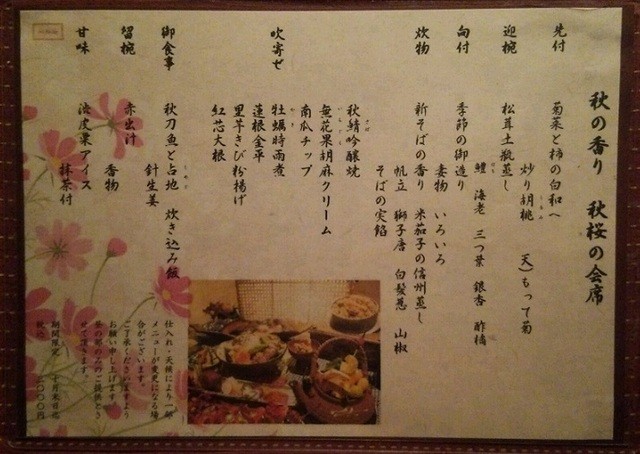 秋の香り 秋桜の会席
先付 菊菜と柿の白和へ
炒り胡桃 天)もって菊
迎椀 松茸土瓶蒸し
鱧 海老 三つ葉 銀杏 酢橘
向付 季節の御造り
妻物 いろいろ
炊物 新そばの香り 米茄子の信州蒸し
帆立 獅子唐 白髪葱 山椒
そばの実餡
吹寄せ 秋鯖吟醸焼
無花果胡麻クリーム
南瓜チップ
牡蠣時雨煮
蓮根金平
里芋きび粉揚げ
紅芯大根
御食事 秋刀魚と占地 炊き込み飯
針生姜
留椀 赤出汁
香物
甘味 渋皮栗アイス
抹茶付
仕入れ・天候により一部
メニューが変更になる場
合がございます。
ご了承くださいますよう
お願い申し上げます。
期間限定